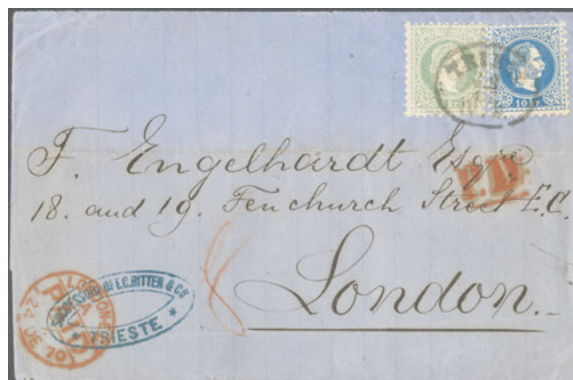 10 kr.
TRIEST
F. Engelhardt Esqire
P.D.
18. and 19. Fenchurch Street E.C.
8
London.
LONDON-E.C
PAID
24 DE 70
SUCCESSORI DI L.C. RITTER & Cº
* TRIESTE *